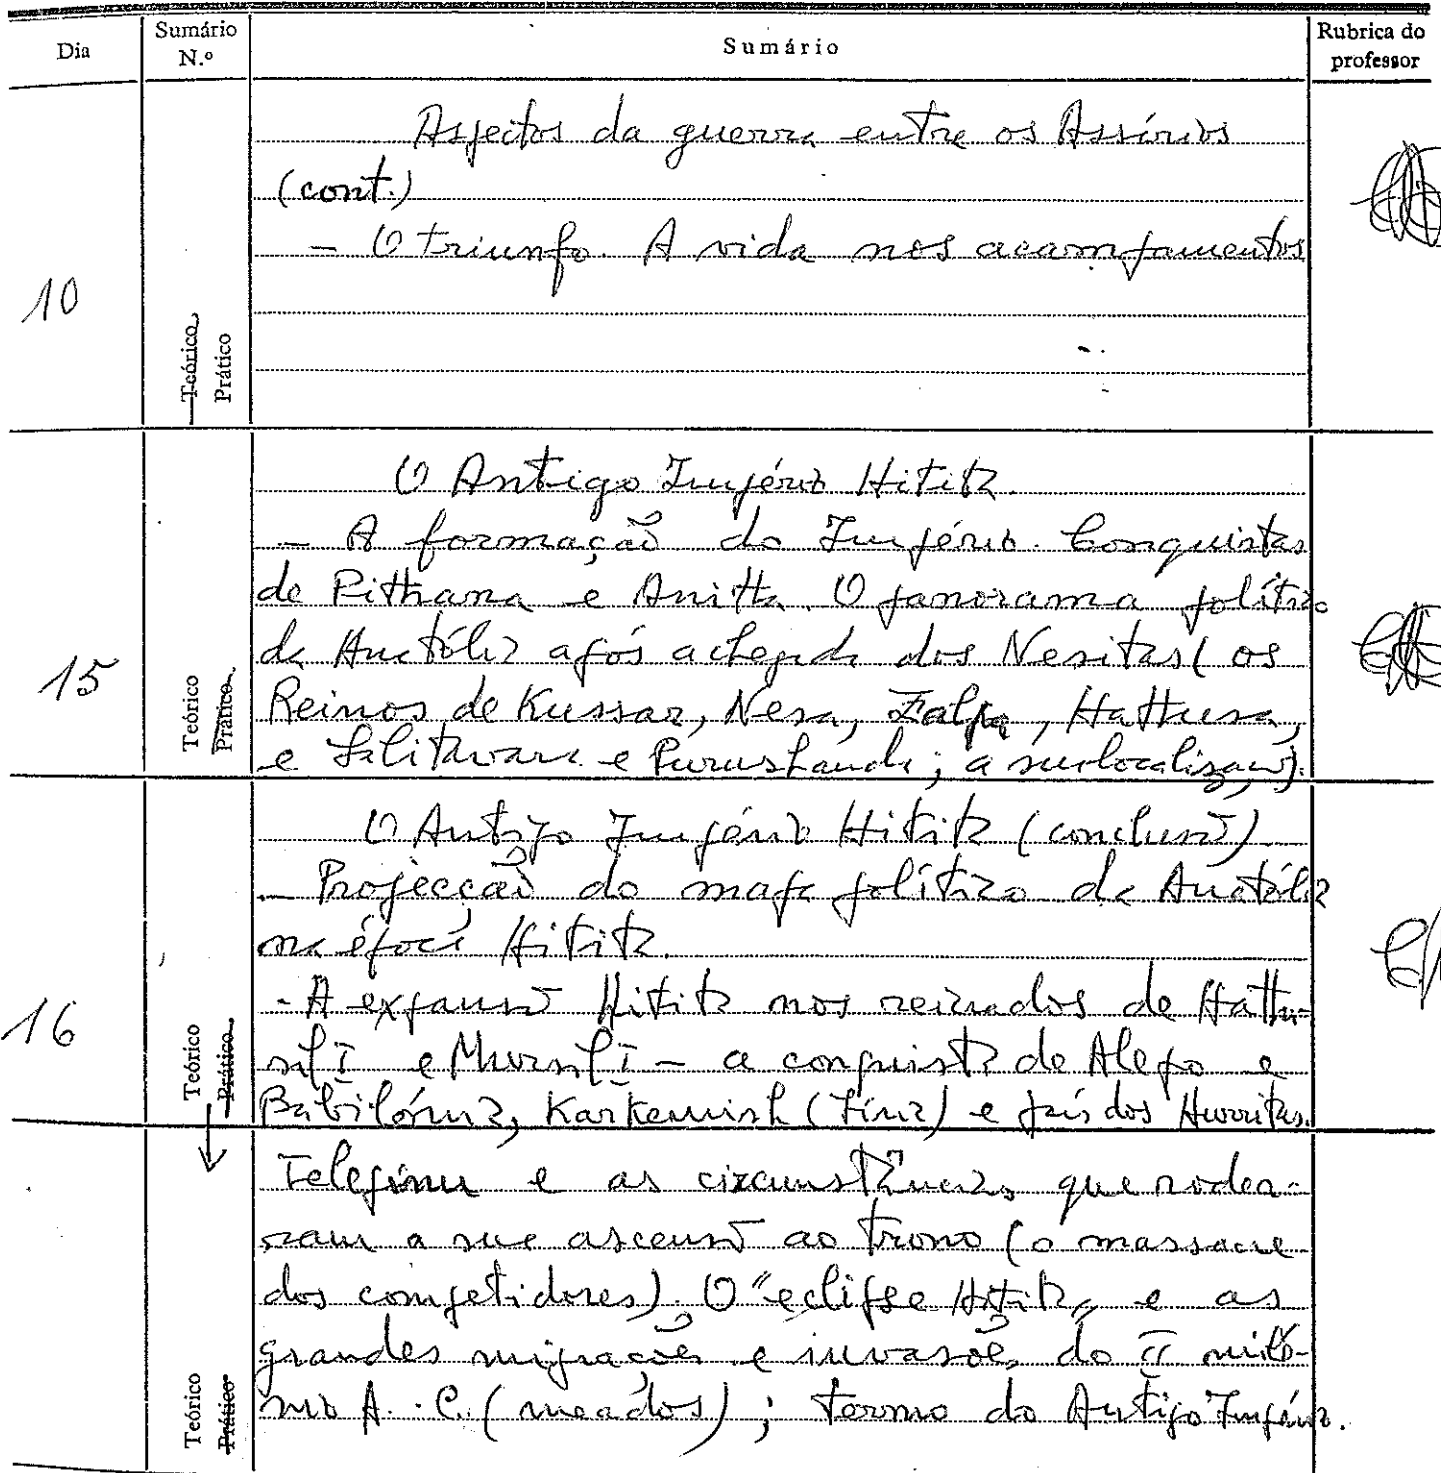 Dia
Sumário N.º
Sumário
Rubrica do professor
Aspectos da guerra entre os Assírios
(cont.)
- O triunfo. A vida nos acampamentos
10
Teórico
Prático
O Antigo Império Hitita.
- A formação do Império. Conquistas
de Pithana e Anitta. O panorama político
da Anatólia após a chegada dos Nesitas (os
15
Teórico
Prático
Reinos de Kussar, Nesa, Zalpa, Hattusa,
e Salitavara e Purushanda; a sua localização).
O Antigo Império Hitita (conclusão)
- Projecção do mapa político da Anatólia
na época Hitita.
- A expansão Hitita nos reinados de Hattu-
16
Teórico
Prático
sil I e Mursil I - a conquista de Alepo e
Babilónia, Karkemish (Síria) e país dos Hurritas.
Telepinu e as circunstâncias que rodea-
ram a sua ascensão ao trono (o massacre
dos competidores). O "eclipse Hitita" e as
grandes migrações e invasões do II milé-
nio A. C. (meados); termo do Antigo Império.
Teórico
Prático